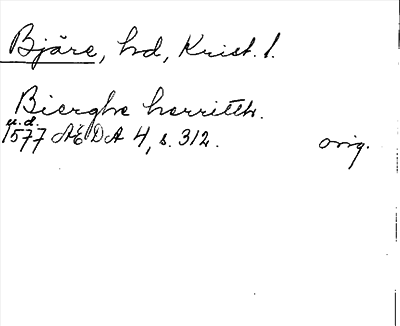 Bjäre, hd, Krist. l.
Bierghe herritth.
u.d.
1577 ÆDA 4, s. 312. orig.